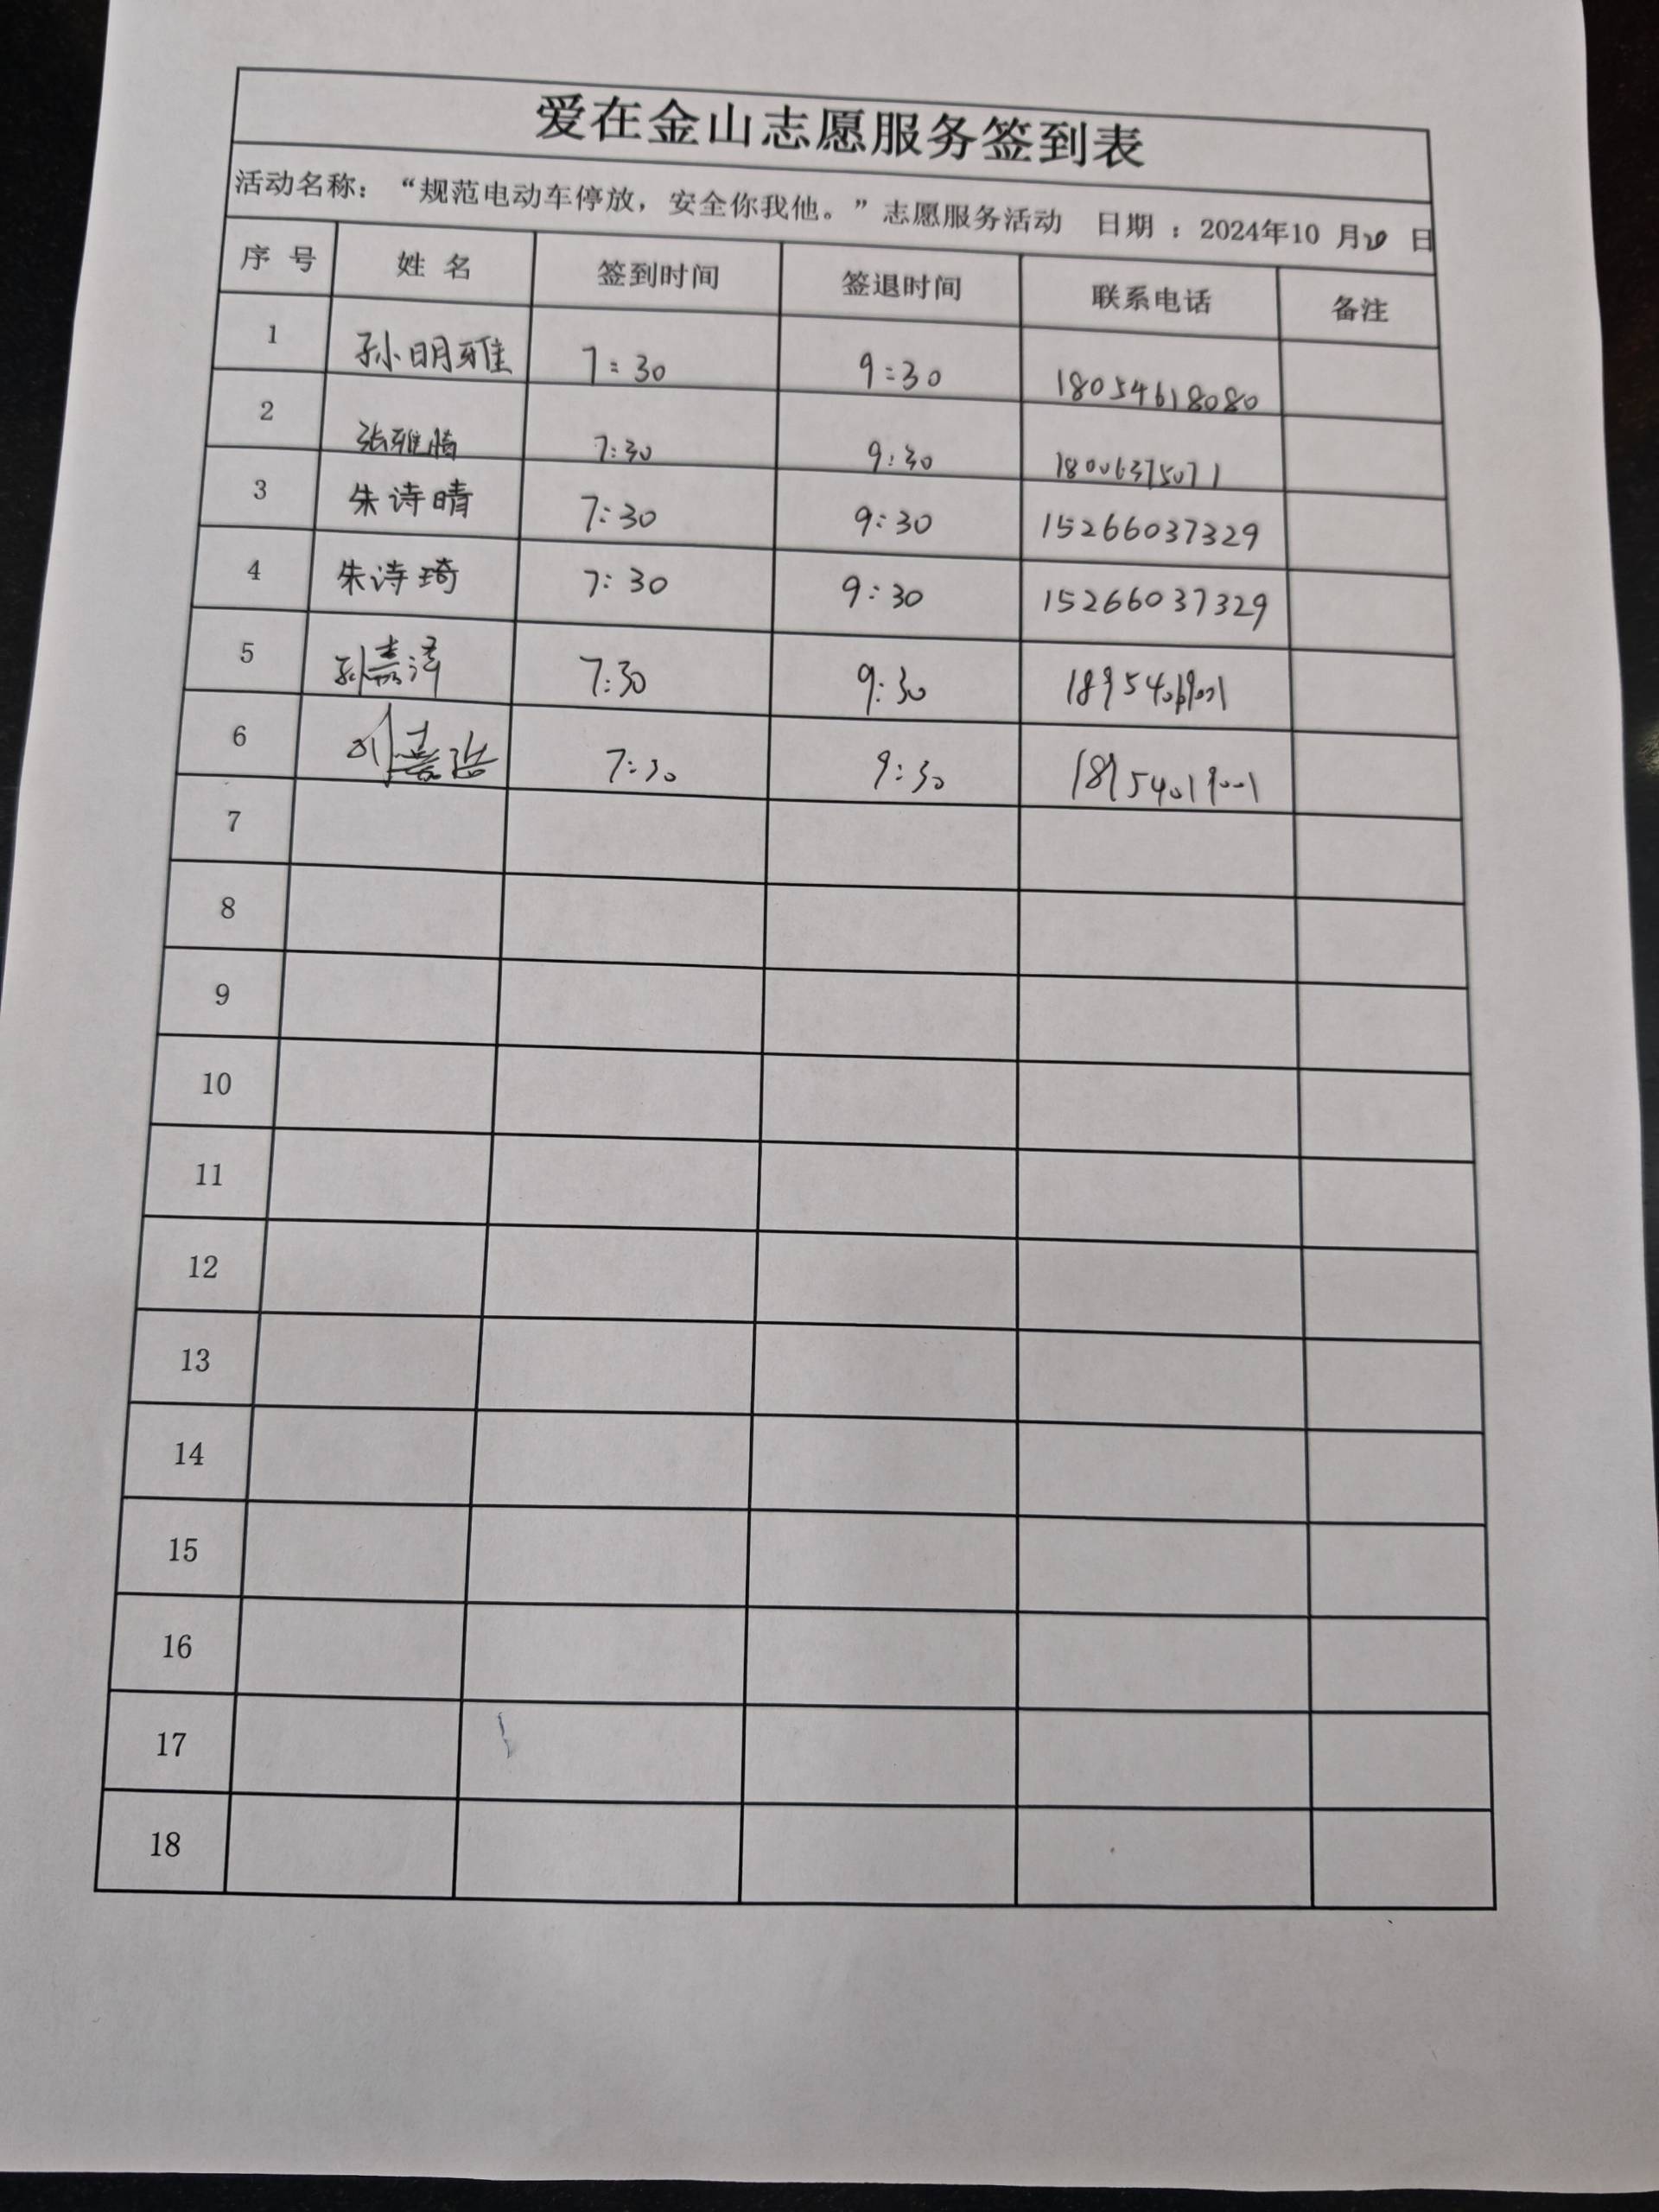 爱在金山志愿服务签到表
活动名称：“规范电动车停放，安全你我他。”志愿服务活动 日期：2024年10 月20 日
序 号 姓 名 签到时间 签退时间 联系电话 备注
1 孙明雅 7:30 9:30 18054618080
2 张雅 7:30 9:30 18006375071
3 朱诗晴 7:30 9:30 15266037329
4 朱诗琦 7:30 9:30 15266037329
5 孙嘉泽 7:30 9:30
6 7:30 9:30
7
8
9
10
11
12
13
14
15
16
17
18